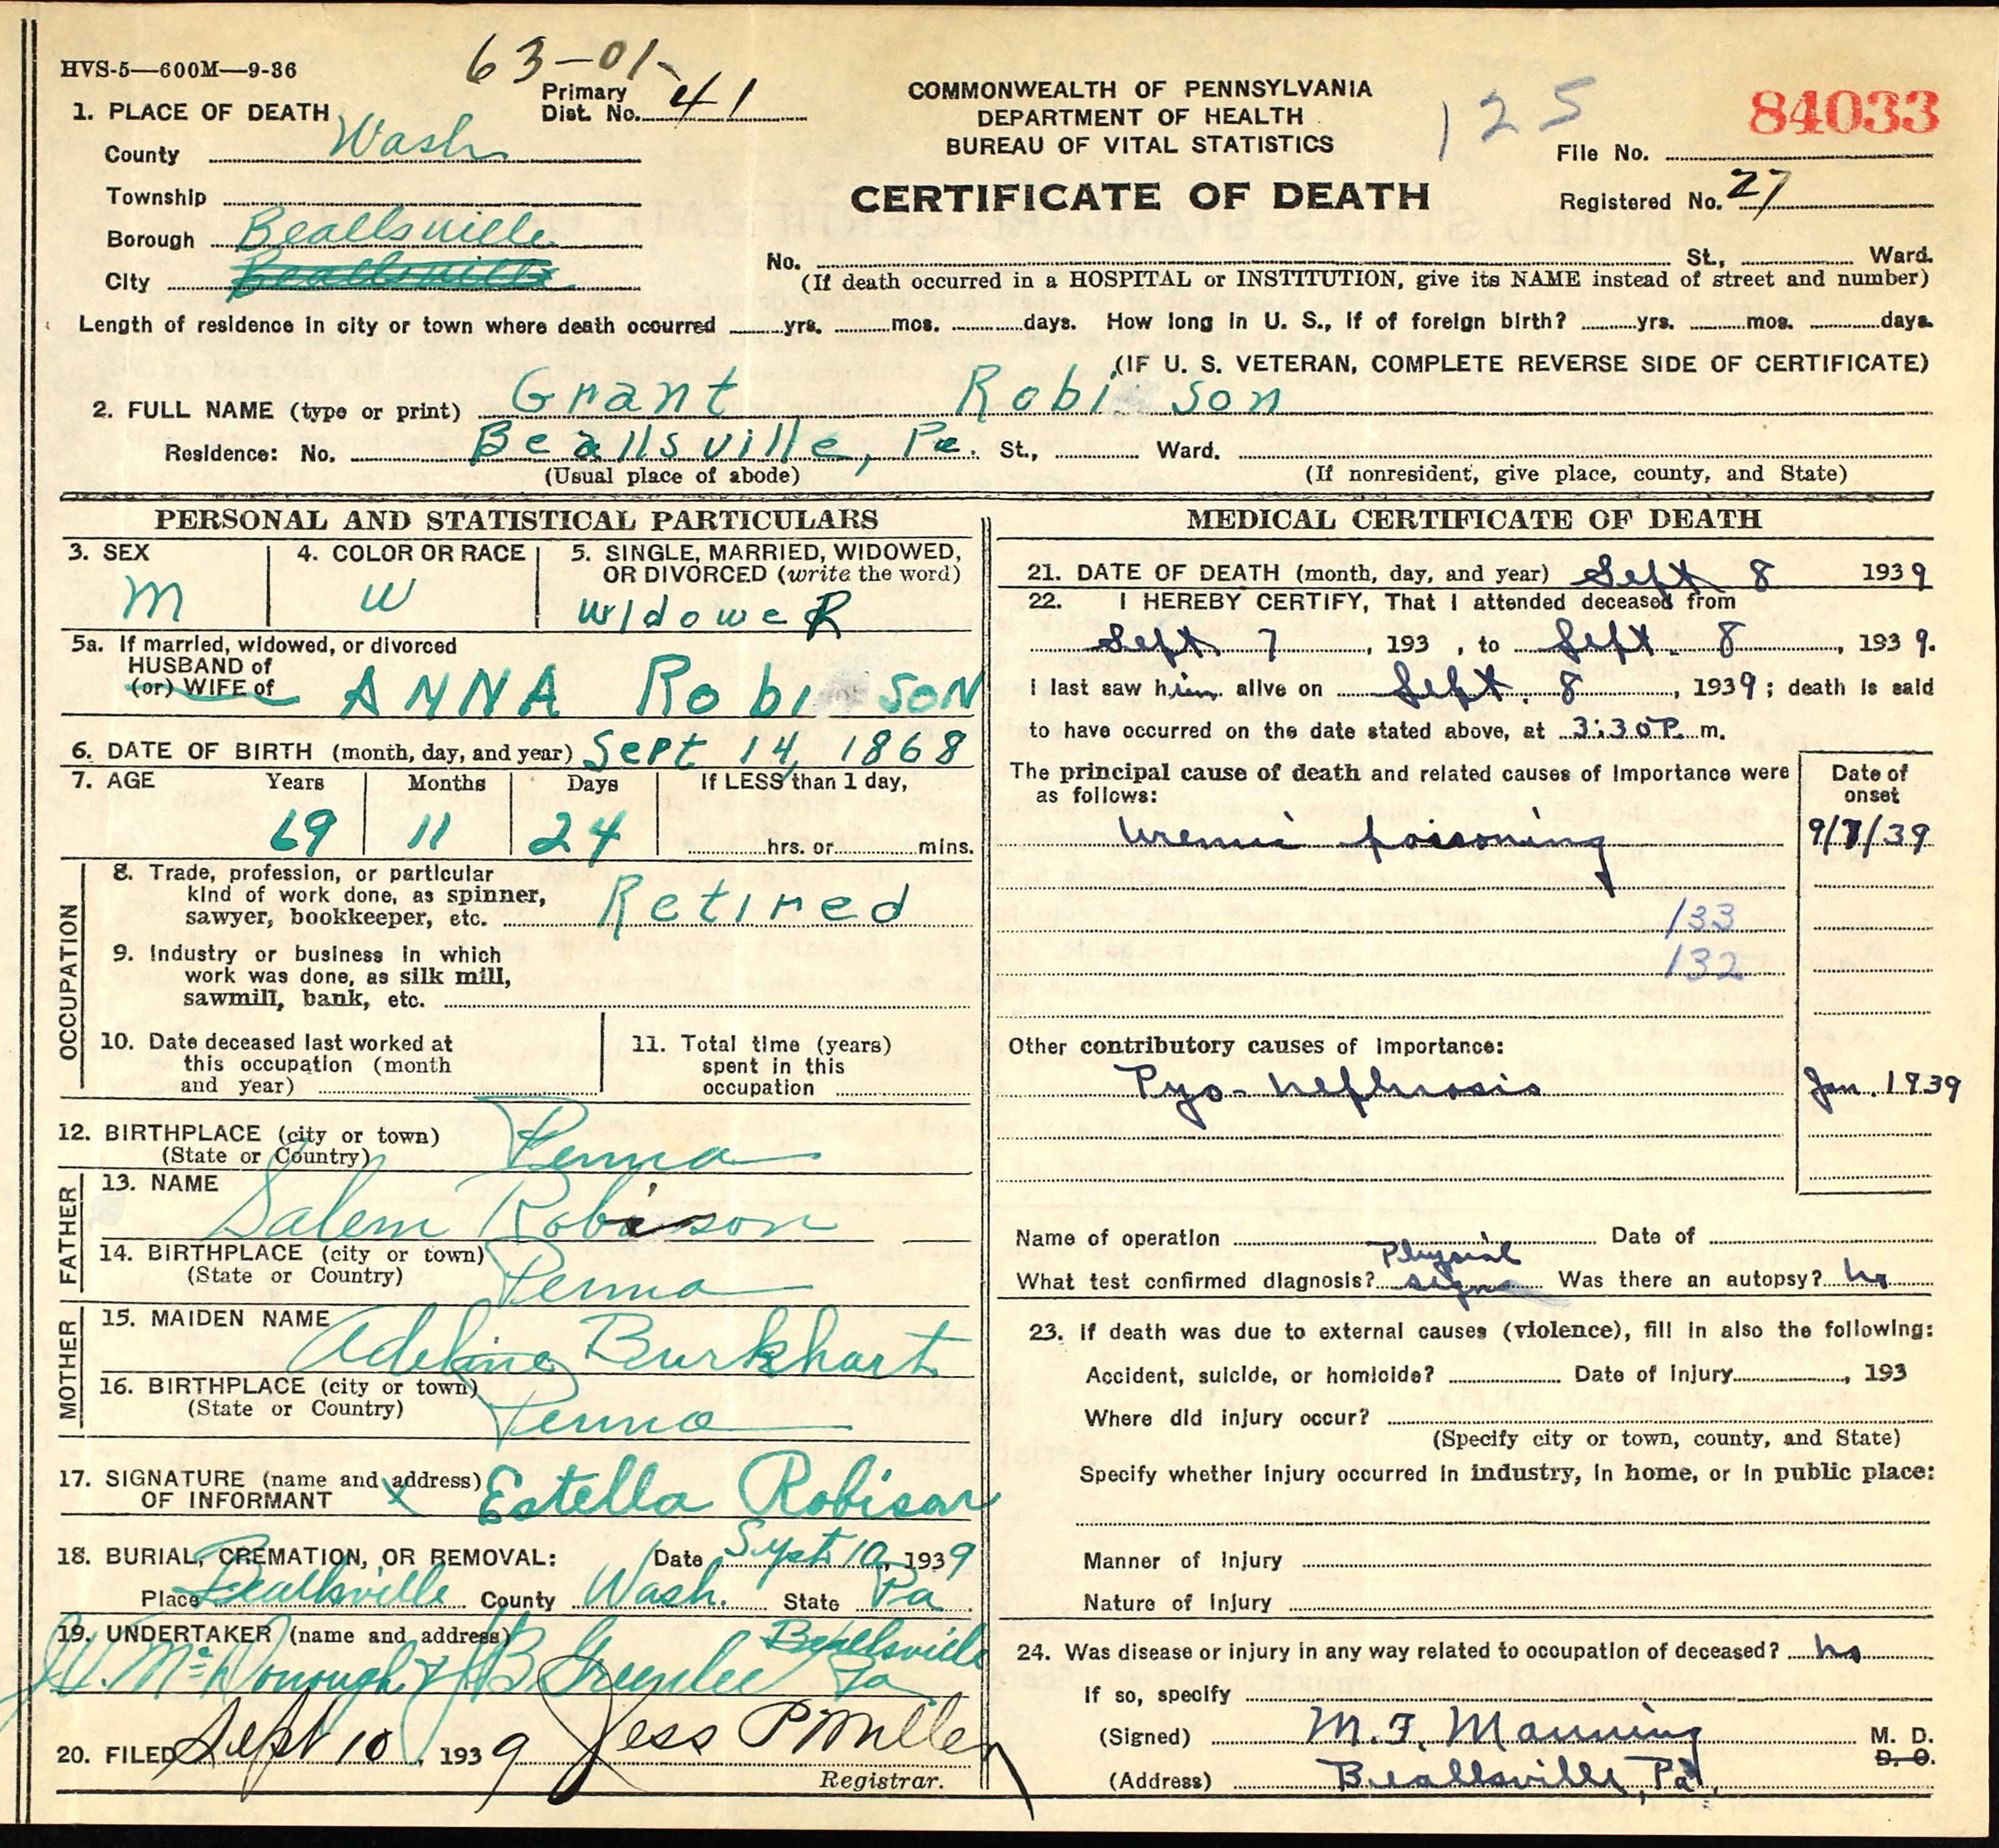 HVS-5—600M—9-36
63-01-
Primary
Dist. No. 41
COMMONWEALTH OF PENNSYLVANIA
DEPARTMENT OF HEALTH
BUREAU OF VITAL STATISTICS
125
84033
File No.
Registered No. 27
CERTIFICATE OF DEATH
1. PLACE OF DEATH
County Wash
Township
Borough Beallsville
City Beallsville
No. St., Ward.
(If death occurred in a HOSPITAL or INSTITUTION, give its NAME instead of street and number)
Length of residence in city or town where death occurred yrs. mos. days. How long in U. S., if of foreign birth? yrs. mos. days.
(IF U. S. VETERAN, COMPLETE REVERSE SIDE OF CERTIFICATE)
2. FULL NAME (type or print) Grant Robi son
Residence: No. Beallsville, Pa. St., Ward.
(Usual place of abode) (If nonresident, give place, county, and State)
PERSONAL AND STATISTICAL PARTICULARS
3. SEX
M
4. COLOR OR RACE
W
5. SINGLE, MARRIED, WIDOWED,
OR DIVORCED (write the word)
WIdoweR
5a. If married, widowed, or divorced
HUSBAND of
(or) WIFE of ANNA Robi SON
6. DATE OF BIRTH (month, day, and year) Sept 14, 1868
7. AGE Years Months Days If LESS than 1 day,
69 11 24 hrs. or mins.
OCCUPATION
8. Trade, profession, or particular
kind of work done, as spinner,
sawyer, bookkeeper, etc. Retired
9. Industry or business in which
work was done, as silk mill,
sawmill, bank, etc.
10. Date deceased last worked at
this occupation (month
and year)
11. Total time (years)
spent in this
occupation
12. BIRTHPLACE (city or town)
(State or Country) Penna
FATHER
13. NAME
Salem Robison
14. BIRTHPLACE (city or town)
(State or Country) Penna
MOTHER
15. MAIDEN NAME
Adeline Burkhart
16. BIRTHPLACE (city or town)
(State or Country) Penna
17. SIGNATURE (name and address)
OF INFORMANT x Estella Robison
18. BURIAL, CREMATION, OR REMOVAL: Date Sept 10, 1939
Place Beallsville County Wash. State Pa
19. UNDERTAKER (name and address) Beallsville
McDonough & JB Greenlee Pa
20. FILED Sept 10, 1939 Jess P Miller
Registrar.
MEDICAL CERTIFICATE OF DEATH
21. DATE OF DEATH (month, day, and year) Sept 8 1939
22. I HEREBY CERTIFY, That I attended deceased from
Sept. 7, 193 , to Sept. 8, 1939.
I last saw him alive on Sept. 8, 1939; death is said
to have occurred on the date stated above, at 3:30 P. m.
The principal cause of death and related causes of importance were
as follows:
Date of
onset
Uremic poisoning 9/7/39
133
132
Other contributory causes of importance:
Pyo-nephrosis Jan. 1939
Name of operation Date of
Physical
What test confirmed diagnosis? signs Was there an autopsy? no
23. If death was due to external causes (violence), fill in also the following:
Accident, suicide, or homicide? Date of Injury , 193
Where did injury occur?
(Specify city or town, county, and State)
Specify whether injury occurred in industry, in home, or in public place:
Manner of Injury
Nature of Injury
24. Was disease or injury in any way related to occupation of deceased? no
If so, specify
(Signed) M. F. Manning M. D.
D. O.
(Address) Beallsville, Pa.